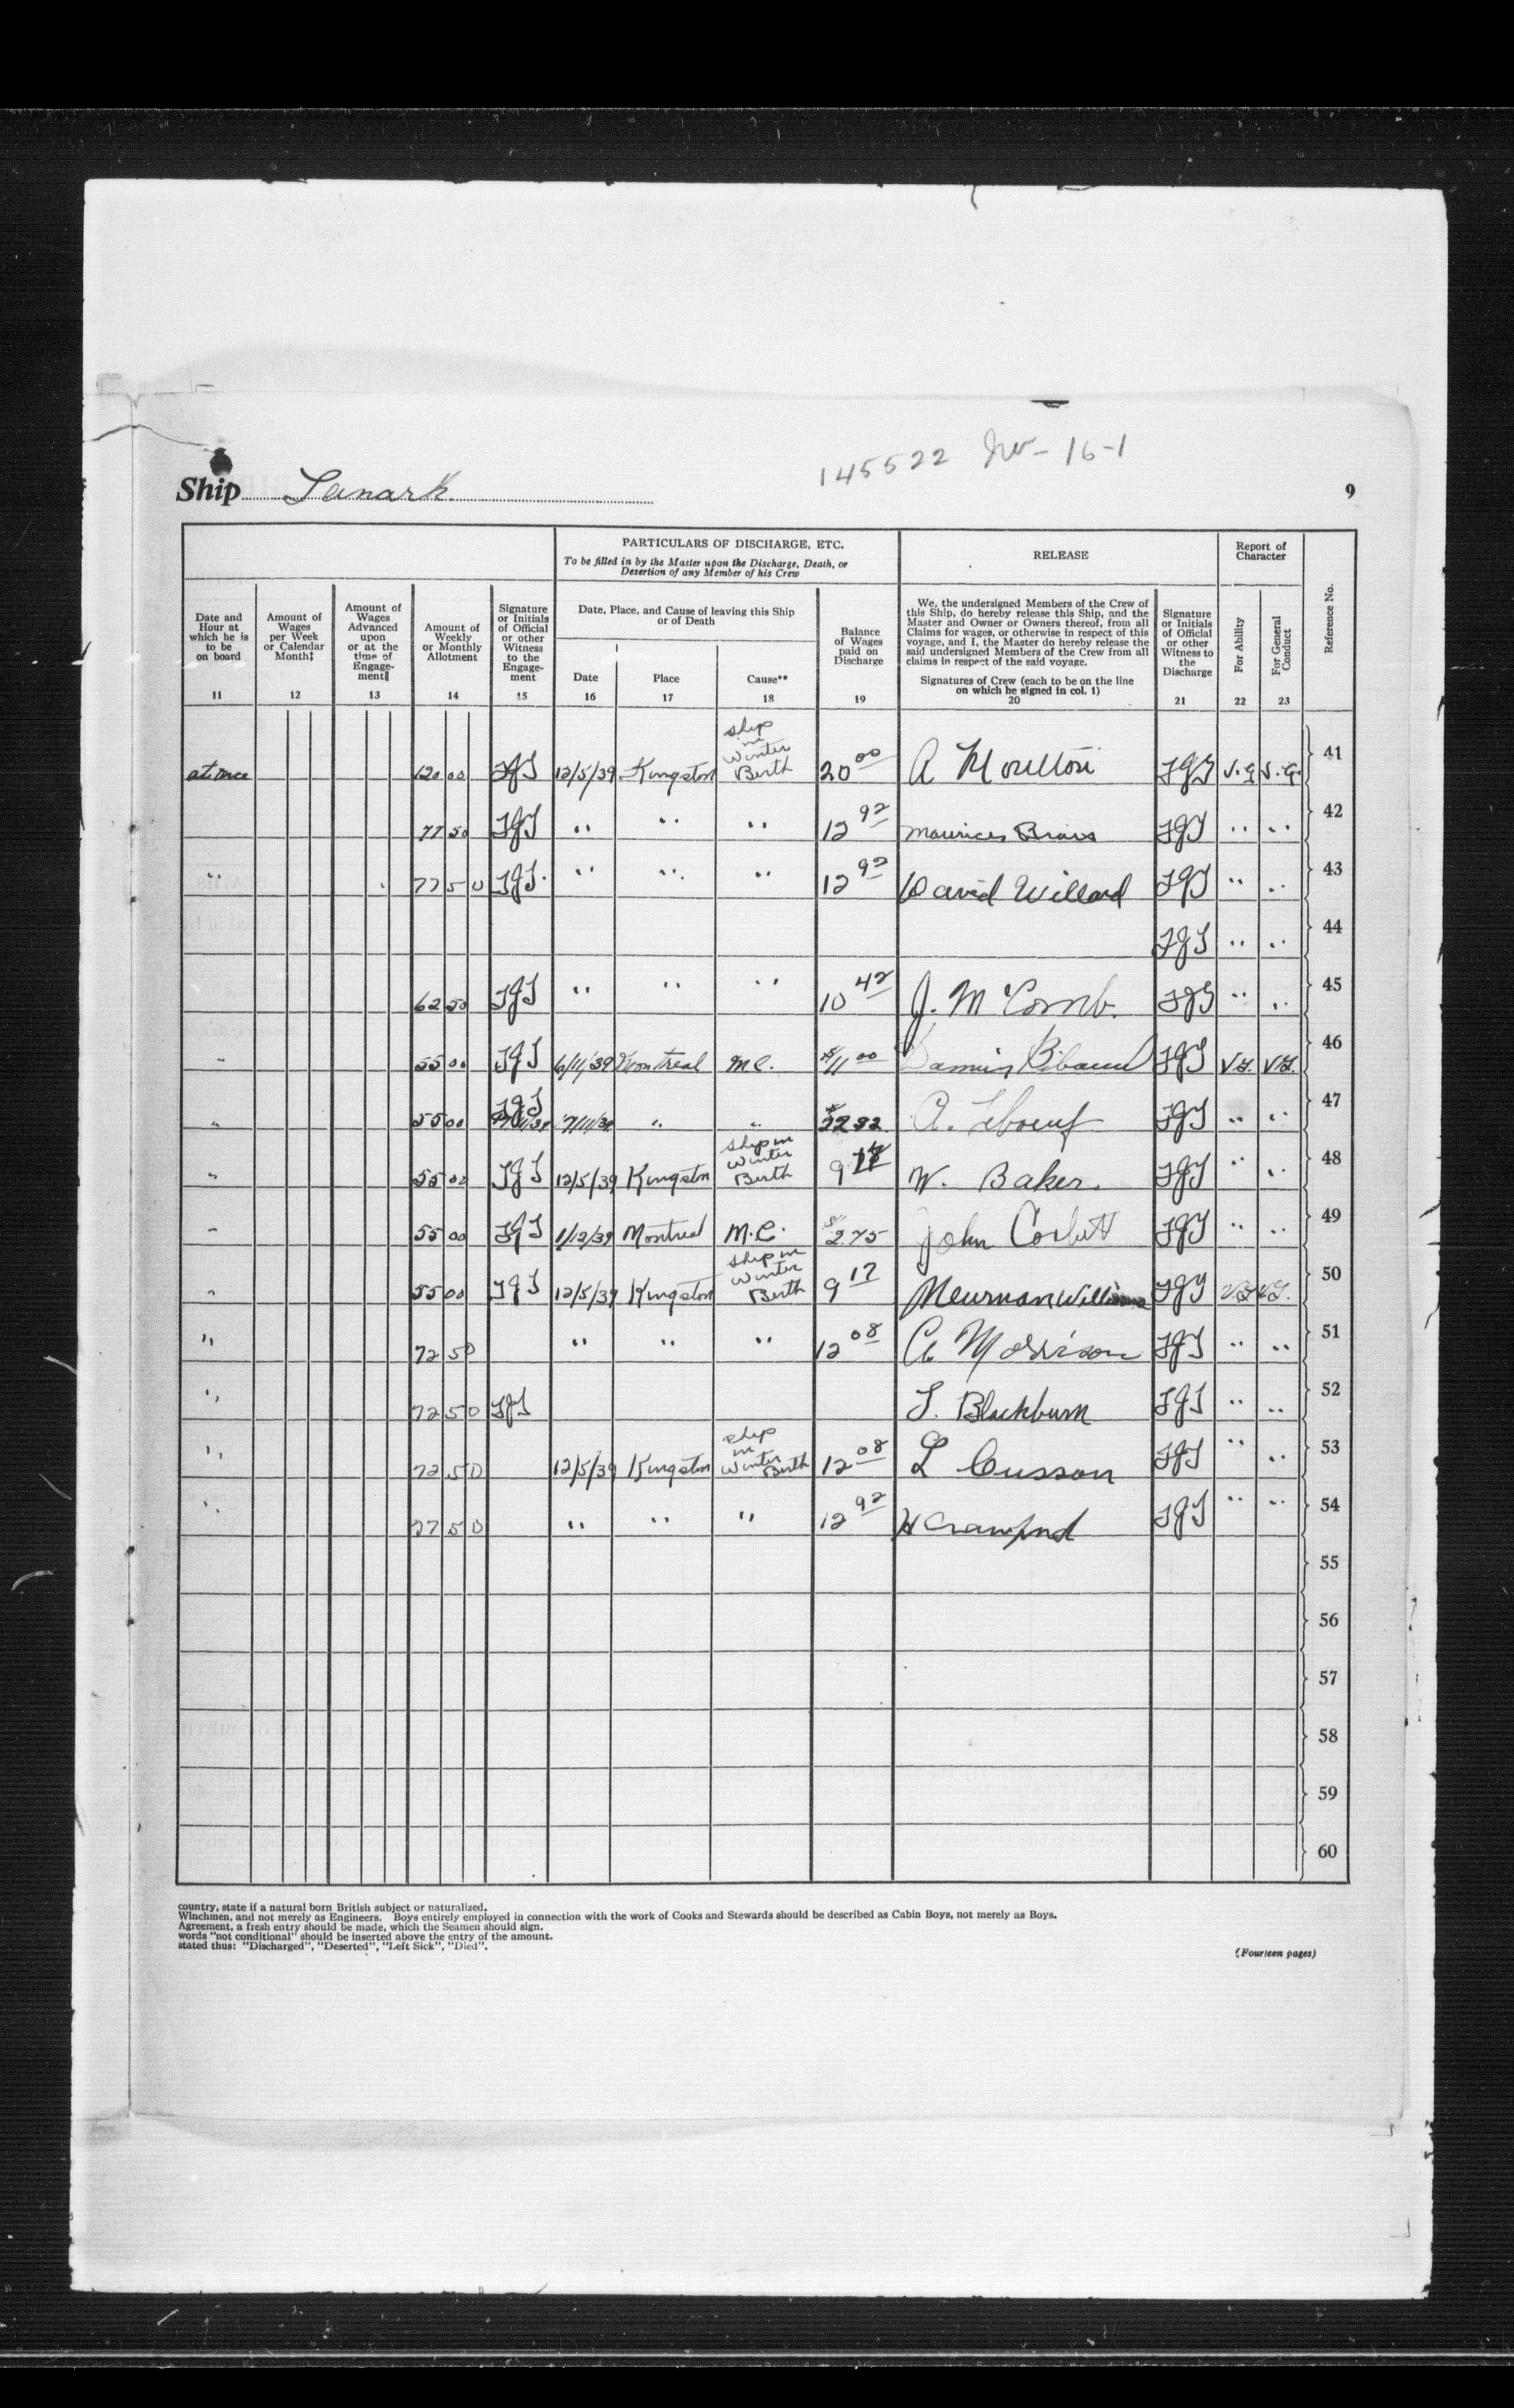 145522 Inv- 16-1
Ship Lanark.
9
PARTICULARS OF DISCHARGE, ETC.
To be filled in by the Master upon the Discharge, Death, or
Desertion of any Member of his Crew
RELEASE
Report of
Character
Date and
Hour at
which he is
to be
on board
11
Amount of
Wages
per Week
or Calendar
Month‡
12
Amount of
Wages
Advanced
upon
or at the
time of
Engage-
ment‖
13
Amount of
Weekly
or Monthly
Allotment
14
Signature
or Initials
of Official
or other
Witness
to the
Engage-
ment
15
Date, Place, and Cause of leaving this Ship
or of Death
Date
16
Place
17
Cause**
18
Balance
of Wages
paid on
Discharge
19
We, the undersigned Members of the Crew of
this Ship, do hereby release this Ship, and the
Master and Owner or Owners thereof, from all
Claims for wages, or otherwise in respect of this
voyage, and I, the Master do hereby release the
said undersigned Members of the Crew from all
claims in respect of the said voyage.
Signatures of Crew (each to be on the line
on which he signed in col. 1)
20
Signature
or Initials
of Official
or other
Witness to
the
Discharge
21
For Ability
22
For General
Conduct
23
Reference No.
at once 120 00 TJT 12/5/39 Kingston ship in Winter Berth 20 00 A Moulton TJT V.G V.G. 41
77 50 TJT " " " 12 92 TJT " " 42
" 77 50 TJT " " " 12 92 David Willard TJT " " 43
TJT " " 44
62 50 TJT " " " 10 42 J. McComb. TJT " " 45
" 55 00 TJT 6/11/39 Montreal M.C. $11 00 TJT V.G. V.G. 46
" 55 00 TJT 7/11/39 " " A. Leboeuf TJT " " 47
" 55 00 TJT 12/5/39 Kingston Ship in Winter Berth 9 17 W. Baker. TJT " " 48
" 55 00 TJT 1/12/39 Montreal M.C. $2.75 John Corbett TJT " " 49
" 55 00 TJT 12/5/39 Kingston Ship in Winter Berth 9 17 Neurman Williams TJT V.G V.G. 50
" 72 50 " " " 12 08 A. Morrison TJT " " 51
" 72 50 TJT T. Blackburn TJT " " 52
" 72 50 12/5/39 Kingston ship in Winter Berth 12 08 L Cusson TJT " " 53
" 77 50 " " " 12 92 H Crawford TJT " " 54
55
56
57
58
59
60
country, state if a natural born British subject or naturalized.
Winchmen, and not merely as Engineers. Boys entirely employed in connection with the work of Cooks and Stewards should be described as Cabin Boys, not merely as Boys.
Agreement, a fresh entry should be made, which the Seamen should sign.
words "not conditional" should be inserted above the entry of the amount.
stated thus: "Discharged", "Deserted", "Left Sick", "Died".
(Fourteen pages)